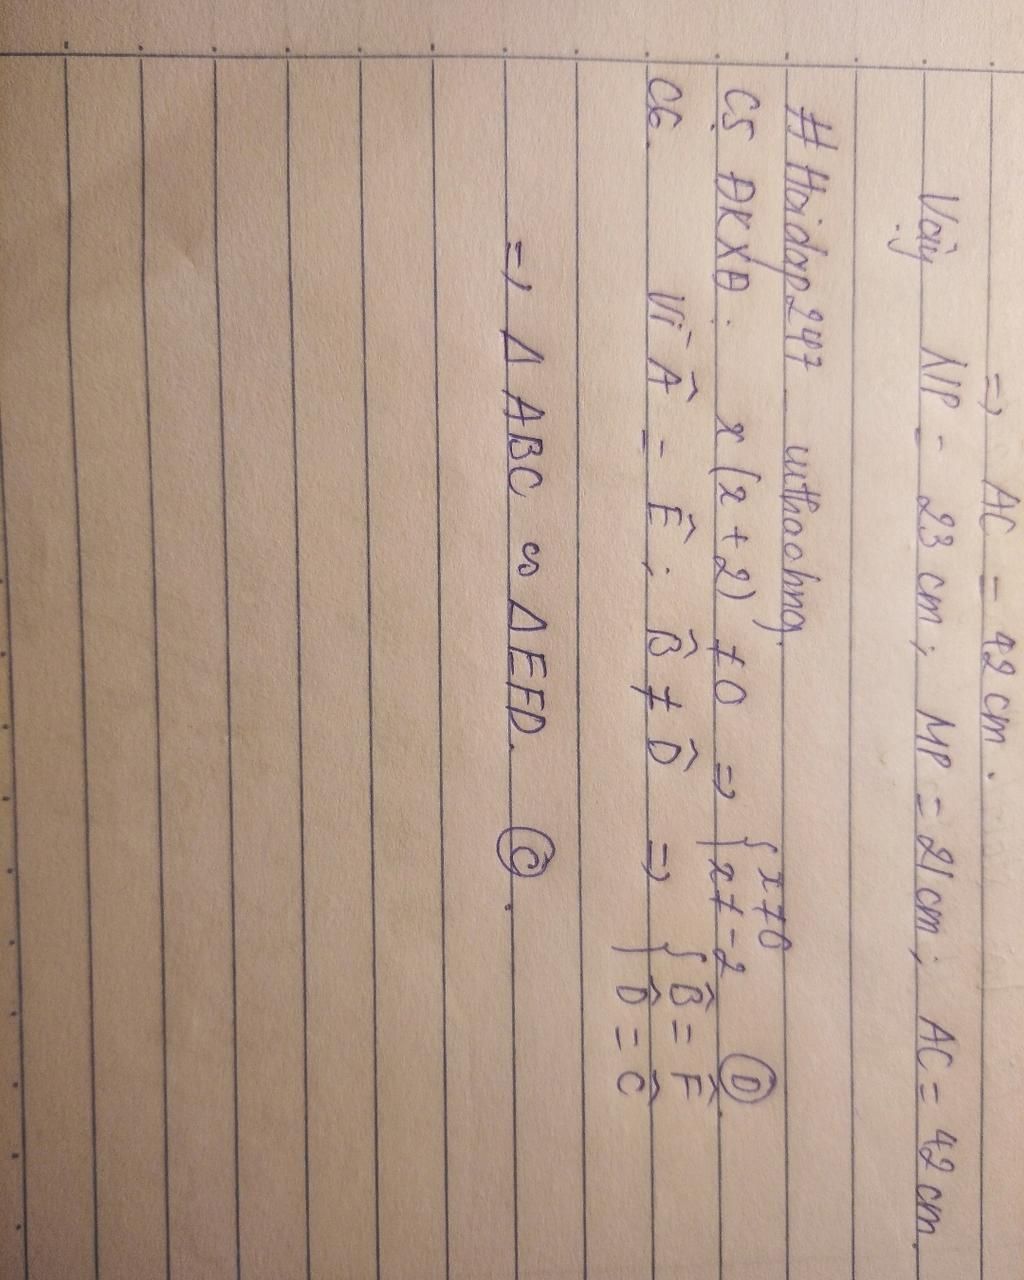 => AC = 42 cm.
Vậy NP = 23 cm; MP = 21 cm; AC = 42 cm.
# Hoidap247 _ uthachng.
C5 ĐKXĐ: x (x + 2) ≠ 0 => { x ≠ 0
x ≠ -2 Ⓓ.
C6. Vì Â = Ê; B̂ ≠ D̂ => { B̂ = F̂
D̂ = Ĉ
=> Δ ABC ∽ Δ EFD. Ⓒ.